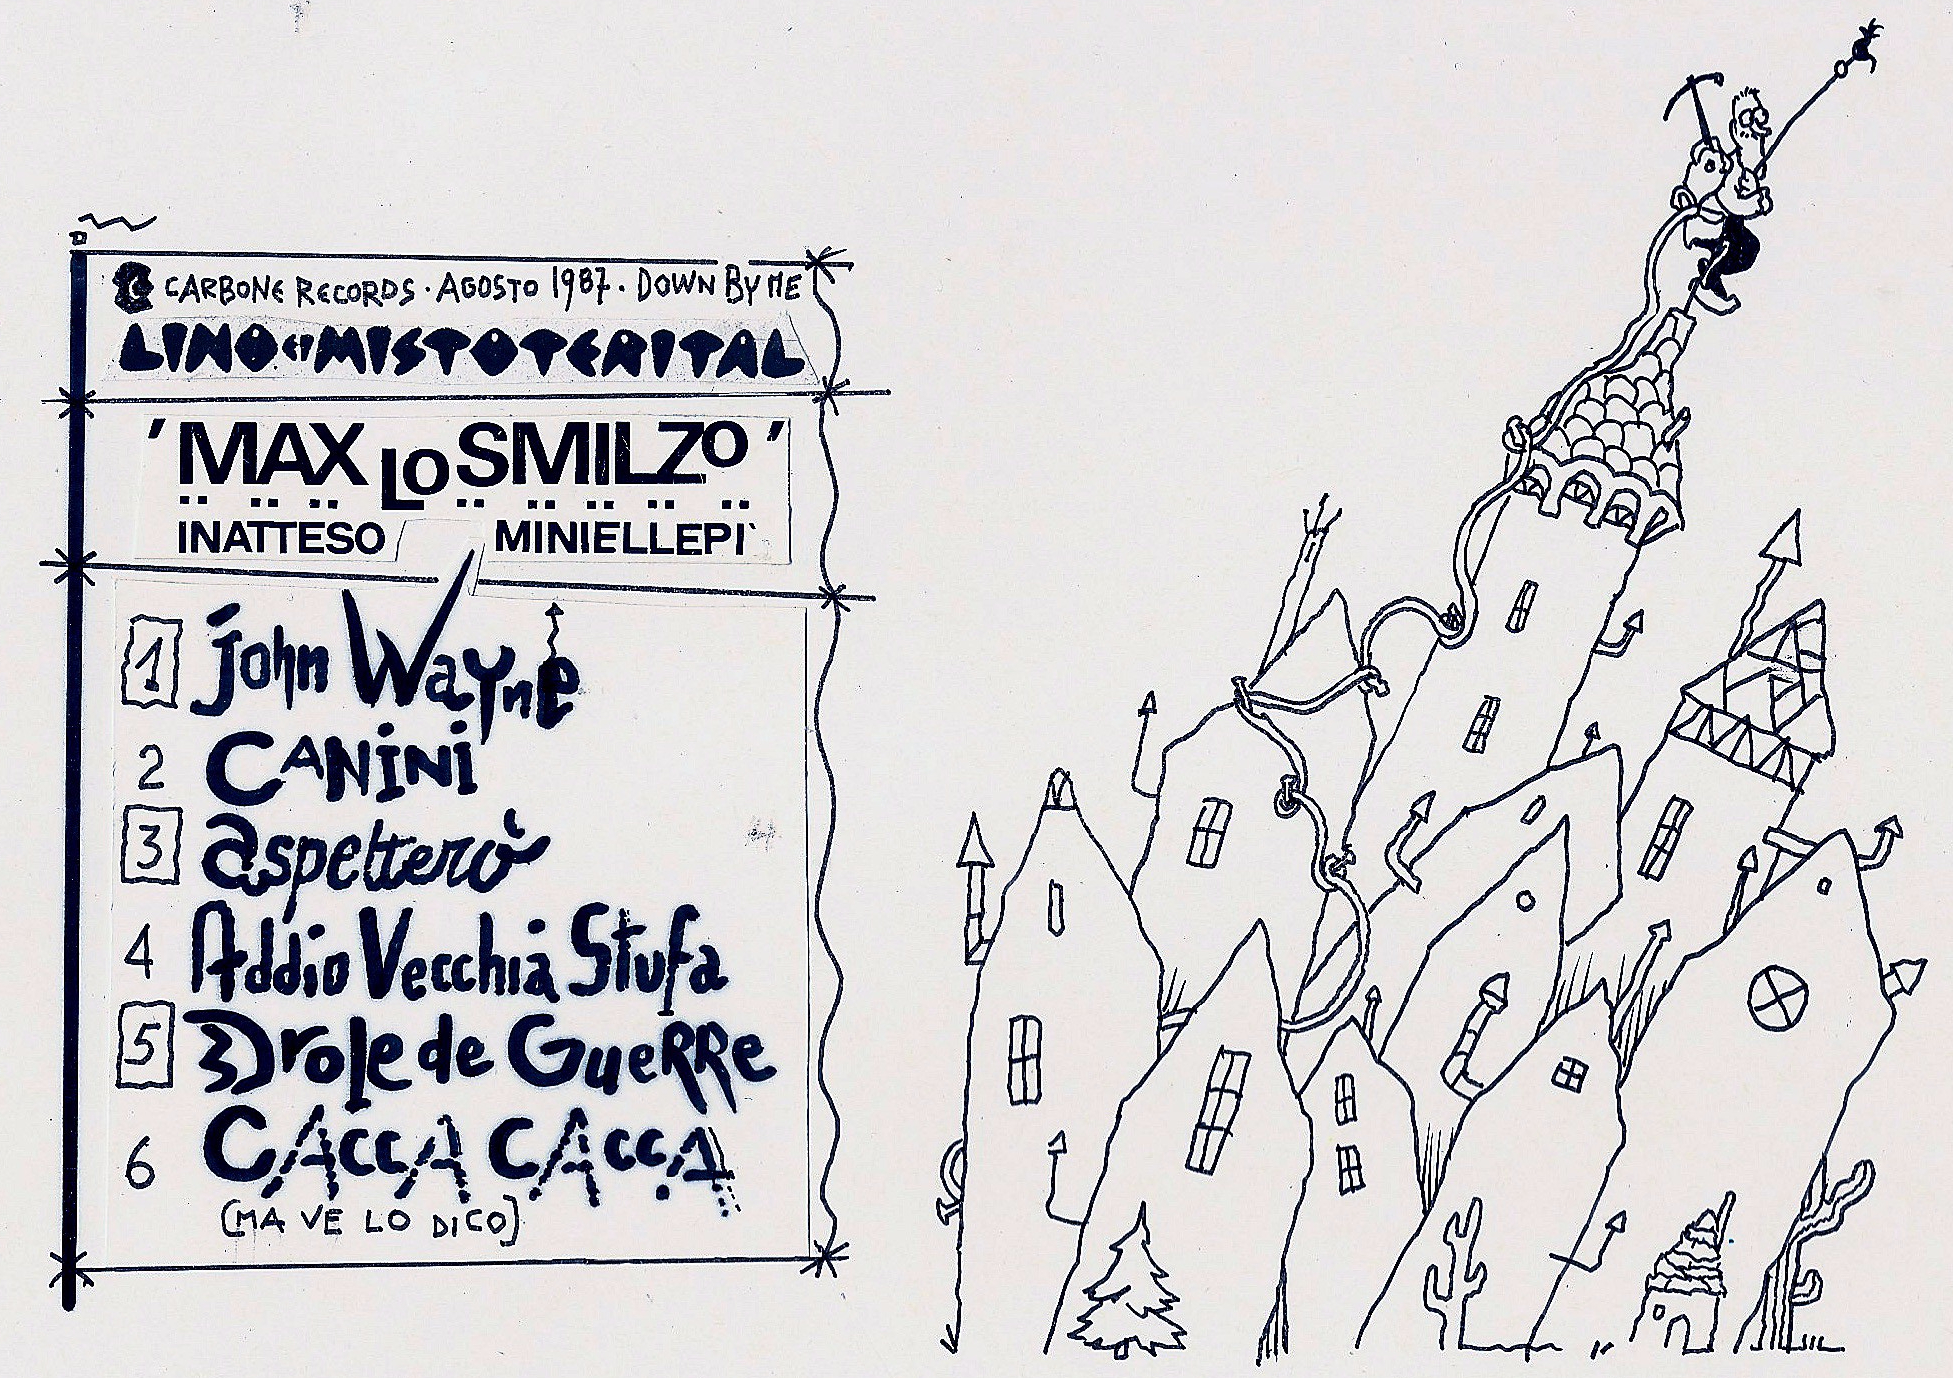 CARBONE RECORDS · AGOSTO 1987 · DOWN BY ME
LINO ET MISTOTERITAL
'MAX LO SMILZO'
INATTESO MINIELLEPI'
1 john Wayne
2 CANiNi
3 aspetterò
4 Addio Vecchia Stufa
5 Drole de GueRRe
6 CACCA CACCA
(MA VE LO DICO)